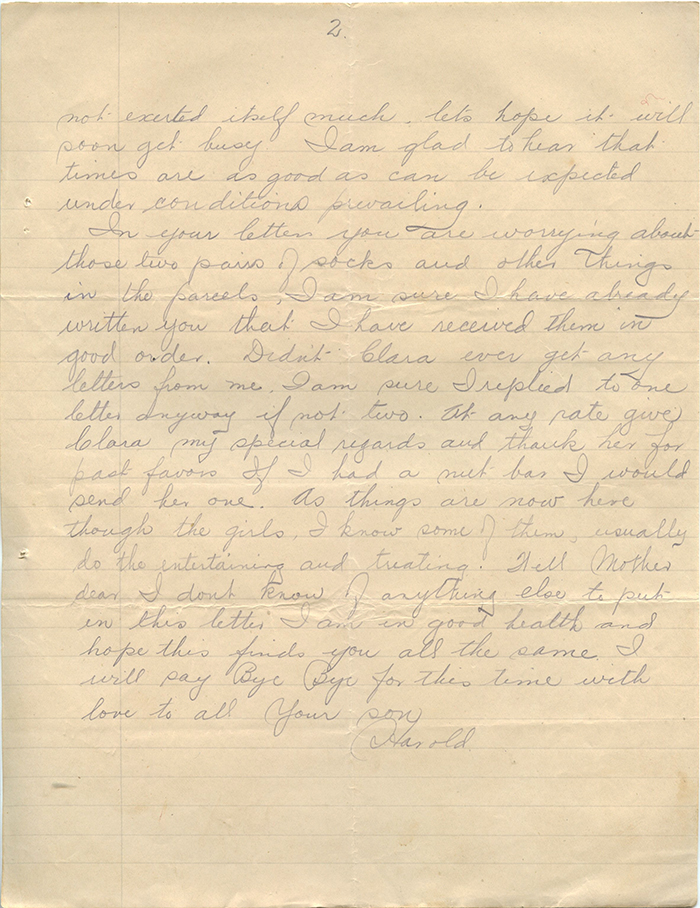 2.
not exerted itself much. lets hope it will
soon get busy I am glad to hear that
times are as good as can be expected
under conditions prevailing.
In your letter you are worrying about
those two pairs of socks and other things
in the parcels, I am sure I have already
written you that I have received them in
good order. Didn't Clara ever get any
letters from me. I am sure I replied to one
letter anyway if not two. At any rate give
Clara my special regards and thank her for
past favors If I had a nut bar I would
send her one. As things are now here
though the girls, I know some of them, usually
do the entertaining and treating. Well Mother
dear I dont know of anything else to put
in this letter I am in good health and
hope this finds you all the same. I
will say Bye Bye for this time with
love to all Your son
Harold.